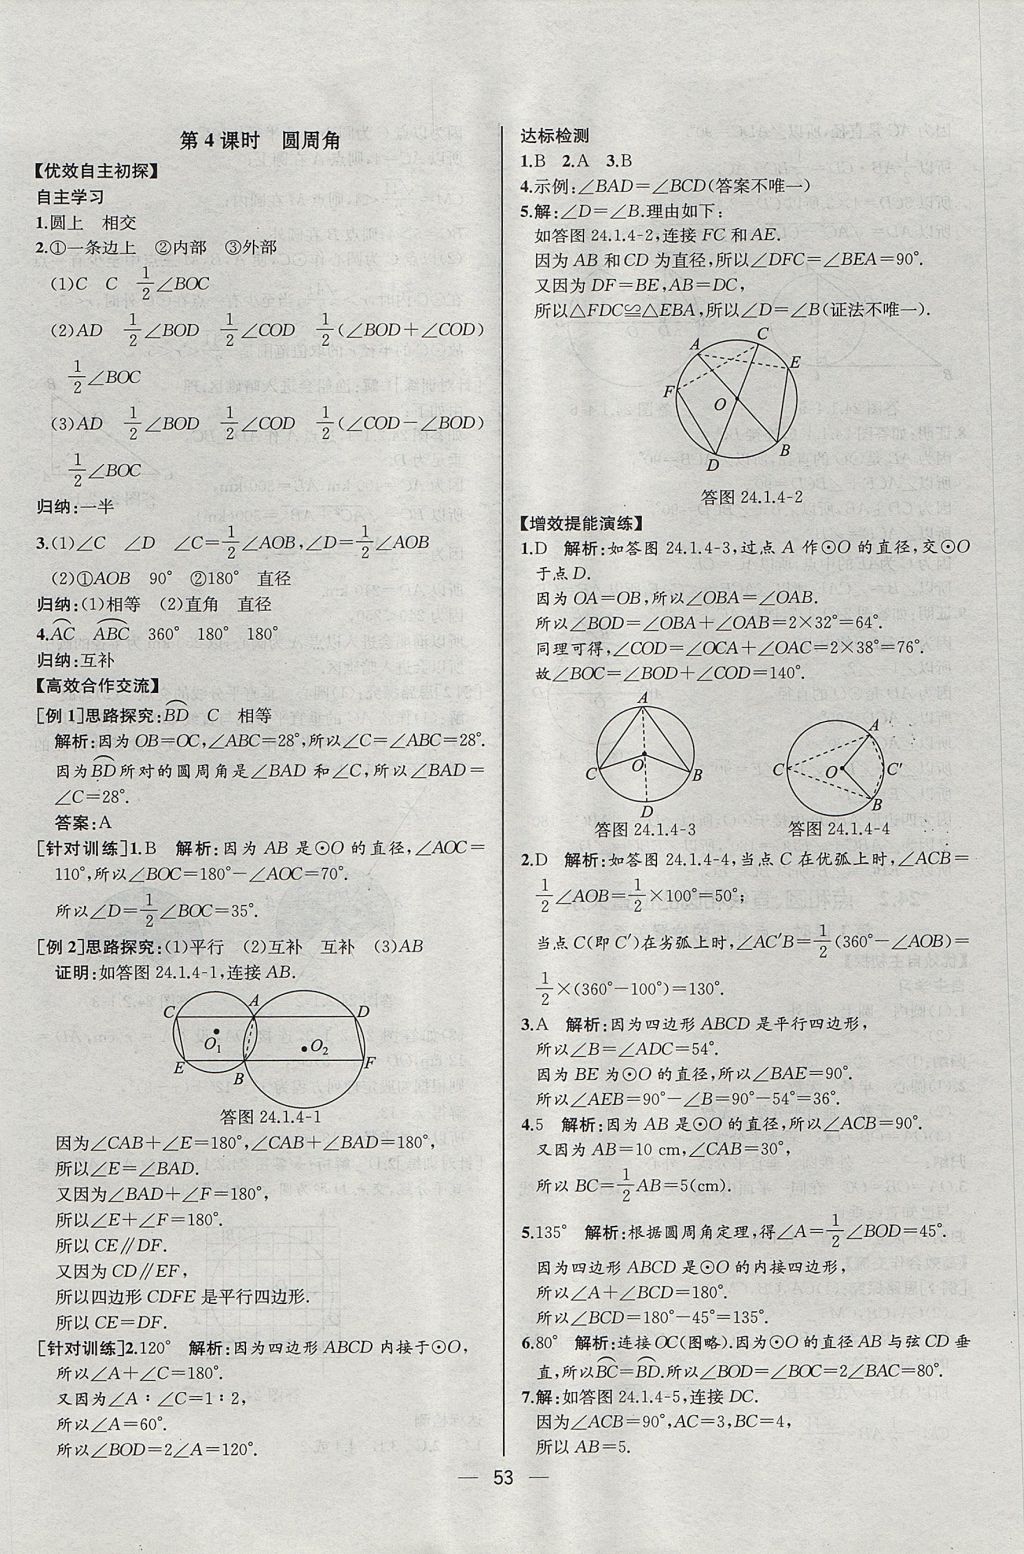 第4课时 圆周角
【优效自主初探】
自主学习
1.圆上 相交
2.①一条边上 ②内部 ③外部
(1)C C 1/2∠BOC
(2)AD 1/2∠BOD 1/2∠COD 1/2(∠BOD+∠COD)
1/2∠BOC
(3)AD 1/2∠BOD 1/2∠COD 1/2(∠COD-∠BOD)
1/2∠BOC
归纳:一半
3.(1)∠C ∠D ∠C=1/2∠AOB,∠D=1/2∠AOB
(2)①AOB 90° ②180° 直径
归纳:(1)相等 (2)直角 直径
4.AC⌒ ABC⌒ 360° 180° 180°
归纳:互补
【高效合作交流】
[例1]思路探究:BD⌒ C 相等
解析:因为OB=OC,∠ABC=28°,所以∠C=∠ABC=28°.
因为BD⌒所对的圆周角是∠BAD和∠C,所以∠BAD=
∠C=28°.
答案:A
[针对训练]1.B 解析:因为AB是⊙O的直径,∠AOC=
110°,所以∠BOC=180°-∠AOC=70°.
所以∠D=1/2∠BOC=35°.
[例2]思路探究:(1)平行 (2)互补 互补 (3)AB
证明:如答图24.1.4-1,连接AB.
C A D
O1 O2
E B F
答图24.1.4-1
因为∠CAB+∠E=180°,∠CAB+∠BAD=180°,
所以∠E=∠BAD.
又因为∠BAD+∠F=180°,
所以∠E+∠F=180°.
所以CE∥DF.
又因为CD∥EF,
所以四边形CDFE是平行四边形.
所以CE=DF.
[针对训练]2.120° 解析:因为四边形ABCD内接于⊙O,
所以∠A+∠C=180°.
又因为∠A∶∠C=1∶2,
所以∠A=60°.
所以∠BOD=2∠A=120°.
达标检测
1.B 2.A 3.B
4.示例:∠BAD=∠BCD(答案不唯一)
5.解:∠D=∠B.理由如下:
如答图24.1.4-2,连接FC和AE.
因为AB和CD为直径,所以∠DFC=∠BEA=90°.
又因为DF=BE,AB=DC,
所以△FDC≌△EBA,所以∠D=∠B(证法不唯一).
A C E
F O
D B
答图24.1.4-2
【增效提能演练】
1.D 解析:如答图24.1.4-3,过点A作⊙O的直径,交⊙O
于点D.
因为OA=OB,所以∠OBA=∠OAB.
所以∠BOD=∠OBA+∠OAB=2×32°=64°.
同理可得,∠COD=∠OCA+∠OAC=2×38°=76°.
故∠BOC=∠BOD+∠COD=140°.
A
C O B
D
答图24.1.4-3
A
C O C′
B
答图24.1.4-4
2.D 解析:如答图24.1.4-4,当点C在优弧上时,∠ACB=
1/2∠AOB=1/2×100°=50°;
当点C(即C′)在劣弧上时,∠AC′B=1/2(360°-∠AOB)=
1/2×(360°-100°)=130°.
3.A 解析:因为四边形ABCD是平行四边形,
所以∠B=∠ADC=54°.
因为BE为⊙O的直径,所以∠BAE=90°.
所以∠AEB=90°-∠B=90°-54°=36°.
4.5 解析:因为AB是⊙O的直径,所以∠ACB=90°.
又因为AB=10 cm,∠CAB=30°,
所以BC=1/2AB=5(cm).
5.135° 解析:根据圆周角定理,得∠A=1/2∠BOD=45°.
因为四边形ABCD是⊙O的内接四边形,
所以∠A+∠BCD=180°.
所以∠BCD=180°-45°=135°.
6.80° 解析:连接OC(图略).因为⊙O的直径AB与弦CD垂
直,所以BC⌒=BD⌒.所以∠BOD=∠BOC=2∠BAC=80°.
7.解:如答图24.1.4-5,连接DC.
因为∠ACB=90°,AC=3,BC=4,
所以AB=5.
— 53 —